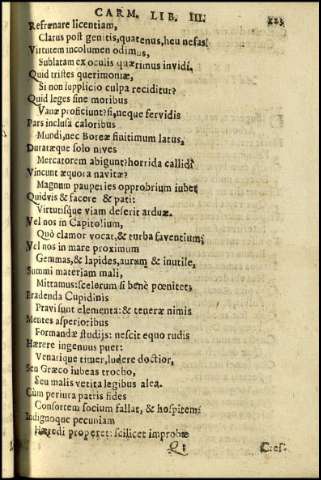 CARM. LIB. III.
Refrænare licentiam,
Clarus post genitis, quatenus, heu nefas!
Virtutem incolumen odimus,
Sublatam ex oculis quærimus invidi.
Quid tristes querimoniæ,
Si non supplicio culpa reciditur?
Quid leges sine moribus
Vanæ proficiunt? si, neque fervidis
Pars inclusa caloribus
Mundi, nec Boreæ finitimum latus,
Duratæque solo nives
Mercatorem abigunt? horrida callidi
Vincunt æquora navitæ?
Magnum pauperies opprobrium iubet
Quidvis & facere & pati:
Virtutisque viam deserit arduæ.
Vel nos in Capitolium,
Quò clamor vocat, & turba faventium;
Vel nos in mare proximum
Gemmas, & lapides, aurum & inutile,
Summi materiam mali,
Mittamus: scelerum si benè pœnitet;
Eradenda Cupidinis
Pravi sunt elementa: & teneræ nimis
Mentes asperioribus
Formandæ studijs: nescit equo rudis
Hærere ingenuus puer:
Venarique timet, ludere doctior,
Seu Græco iubeas trocho,
Seu malis vetita legibus alea.
Cùm periura patris fides
Consortem socium fallat, & hospitem:
Indignoque pecuniam
Hæredi properet: scilicet improbæ
Cres-